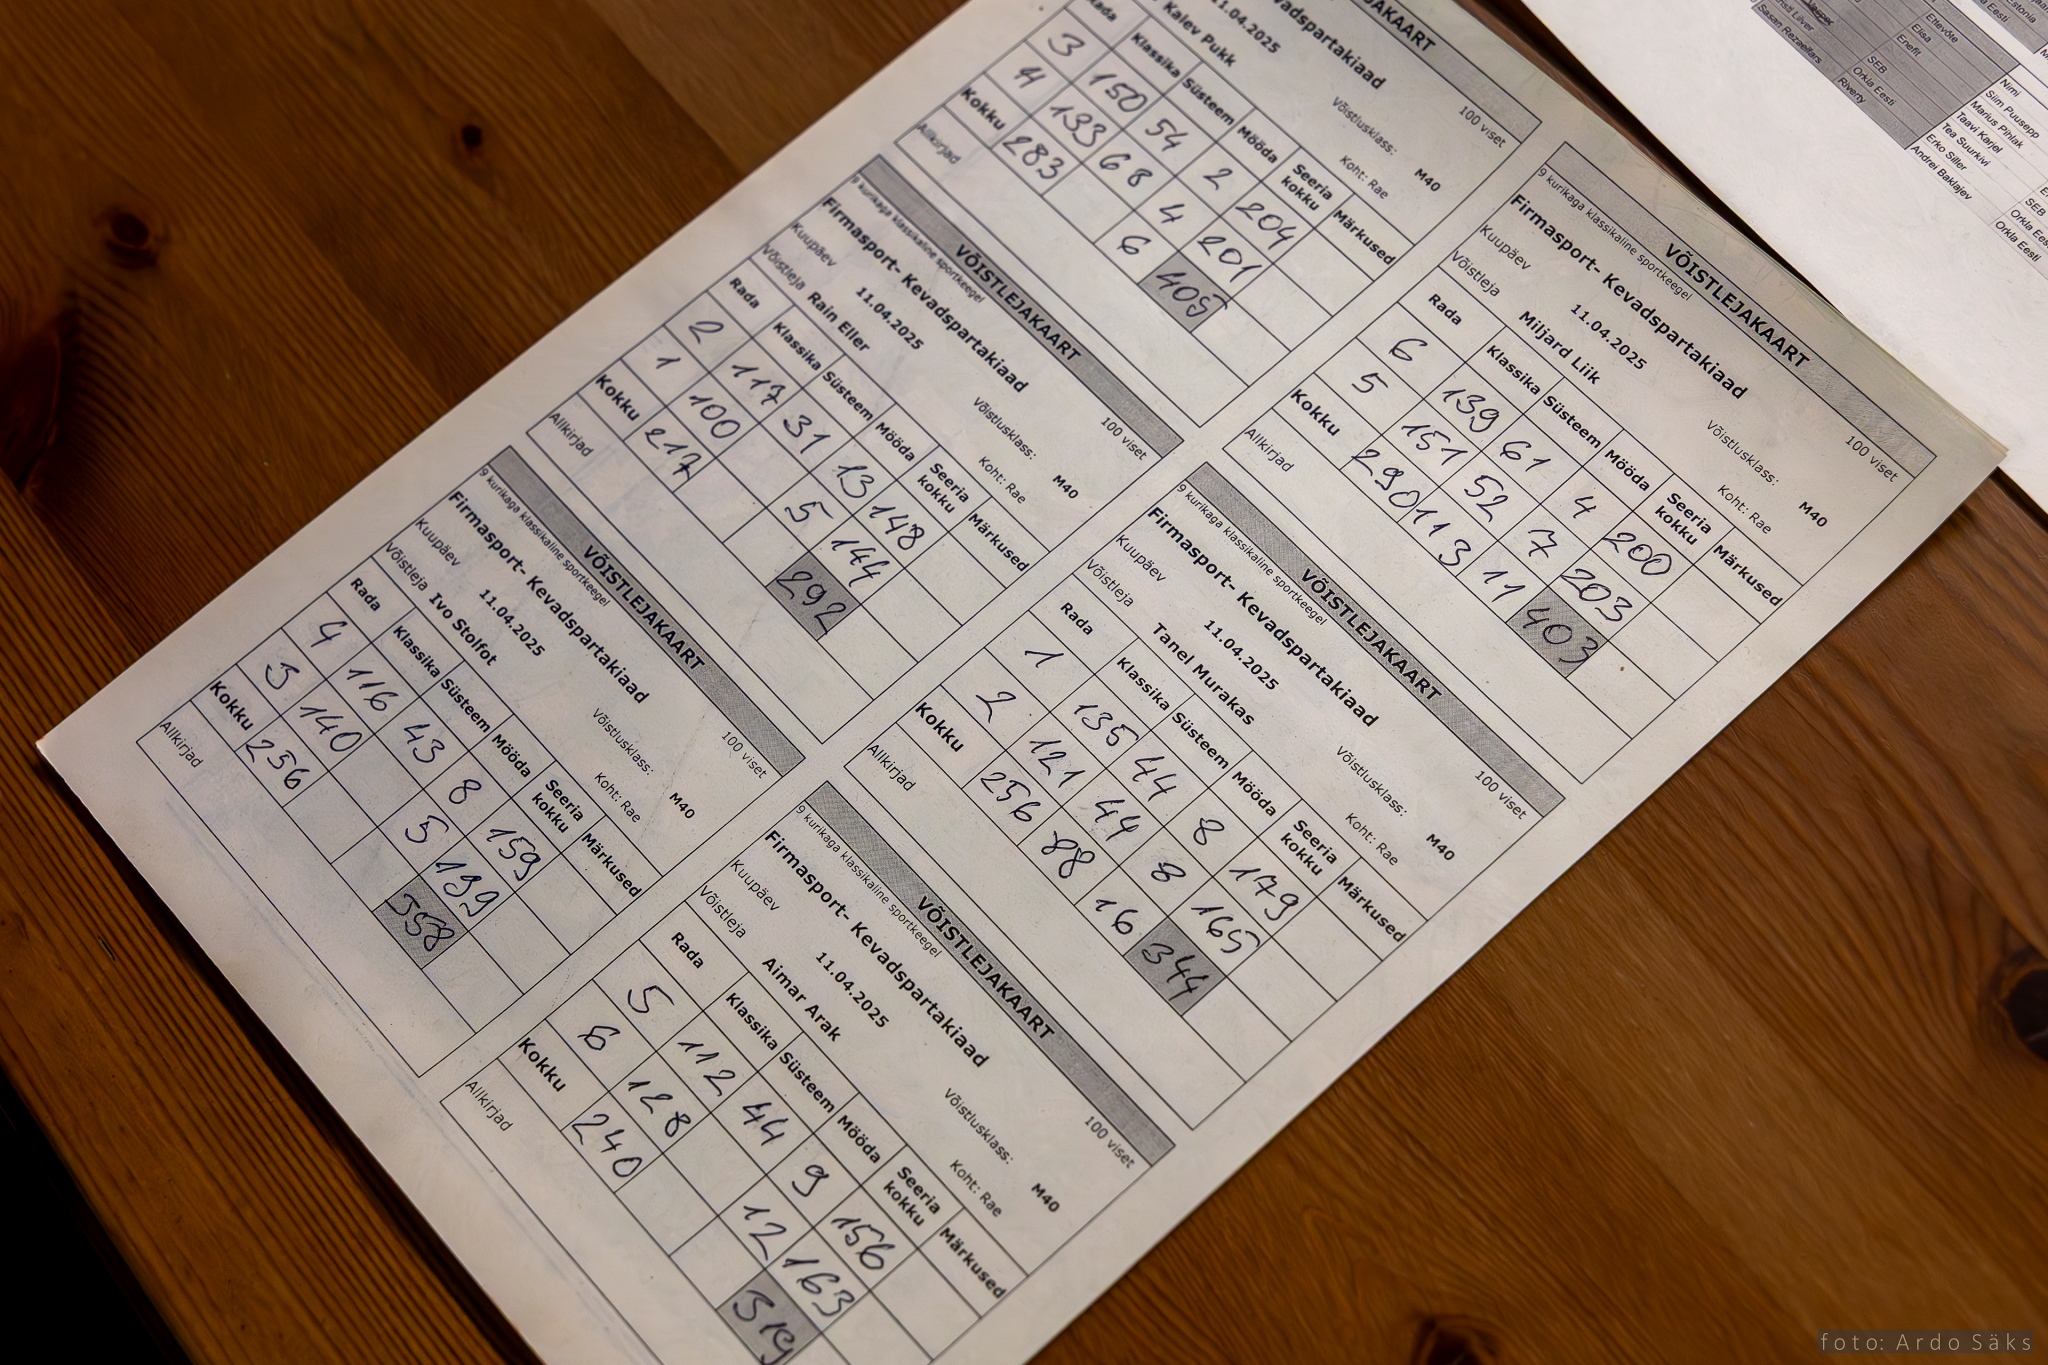 VÕISTLEJAKAART
100 viset
Kevadspartakiaad
11.04.2025
Võistlusklass: M40
Kalev Pukk
Koht: Rae
Rada Klassika Süsteem Mööda Seeria kokku Märkused
3 150 54 2 204
4 133 68 4 201
Kokku 283 6 405
Allkirjad
VÕISTLEJAKAART
9 kurikaga klassikaline sportkeegel 100 viset
Firmasport- Kevadspartakiaad
Kuupäev 11.04.2025 Võistlusklass: M40
Võistleja Rain Eller Koht: Rae
Rada Klassika Süsteem Mööda Seeria kokku Märkused
2 117 31 13 148
1 100 5 144
Kokku 217 292
Allkirjad
VÕISTLEJAKAART
9 kurikaga klassikaline sportkeegel 100 viset
Firmasport- Kevadspartakiaad
Kuupäev 11.04.2025 Võistlusklass: M40
Võistleja Ivo Stolfot Koht: Rae
Rada Klassika Süsteem Mööda Seeria kokku Märkused
4 116 43 8 159
3 140 5 199
Kokku 256 358
Allkirjad
VÕISTLEJAKAART
9 kurikaga klassikaline sportkeegel 100 viset
Firmasport- Kevadspartakiaad
Kuupäev 11.04.2025 Võistlusklass: M40
Võistleja Miljard Liik Koht: Rae
Rada Klassika Süsteem Mööda Seeria kokku Märkused
6 139 61 4 200
5 151 52 7 203
Kokku 290 113 11 403
Allkirjad
VÕISTLEJAKAART
9 kurikaga klassikaline sportkeegel 100 viset
Firmasport- Kevadspartakiaad
Kuupäev 11.04.2025 Võistlusklass: M40
Võistleja Tanel Murakas Koht: Rae
Rada Klassika Süsteem Mööda Seeria kokku Märkused
1 135 44 8 179
2 121 44 8 165
Kokku 256 88 16 344
Allkirjad
VÕISTLEJAKAART
9 kurikaga klassikaline sportkeegel 100 viset
Firmasport- Kevadspartakiaad
Kuupäev 11.04.2025 Võistlusklass: M40
Võistleja Aimar Arak Koht: Rae
Rada Klassika Süsteem Mööda Seeria kokku Märkused
5 112 44 9 156
6 128 12 163
Kokku 240 319
Allkirjad
Ettevõte
Elisa
Enefit
SEB
Orkla Eesti
Riverty
Nimi
Siim Puusepp
Marius Pihlak
Taavi Karjel
Tea Suurkivi
Erko Siller
Andrei Baklajev
SEB
Orkla Eesti
Orkla Eesti
foto: Ardo Säks